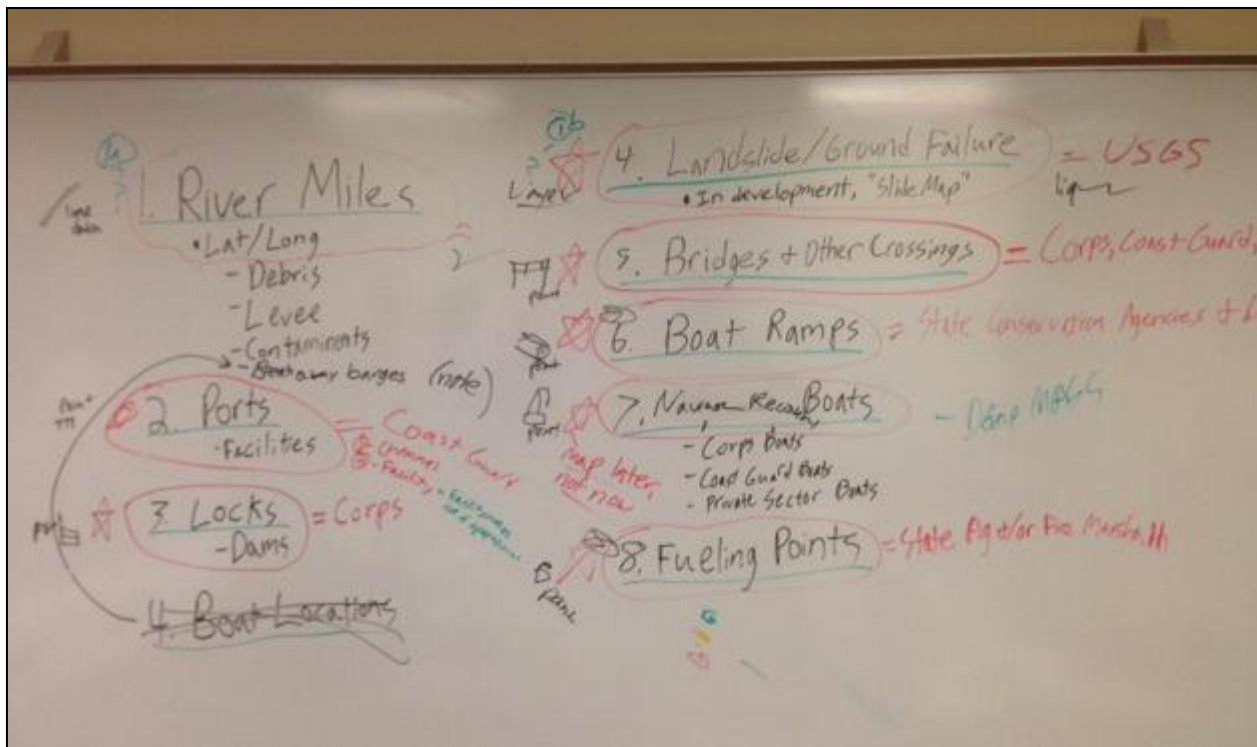 1. River Miles
• Lat/Long
- Debris
- Levee
- Contaminents
barges (note)
2. Ports
- Facilites
= Coast Guard
channel
3. Locks
- Dams
= Corps
4. Boat Locations
1b
Layer
4. Landslide/Ground Failure
= USGS
• In development, "Slide Map"
5. Bridges + Other Crossings
= Corps, Coast Guard,
point
6. Boat Ramps
= State Conservation Agencies +
point
7. Boats
- Corps Boats
- Coast Guard Boats
- Private Sector Boats
map later,
not now
8. Fueling Points
= State Ag or